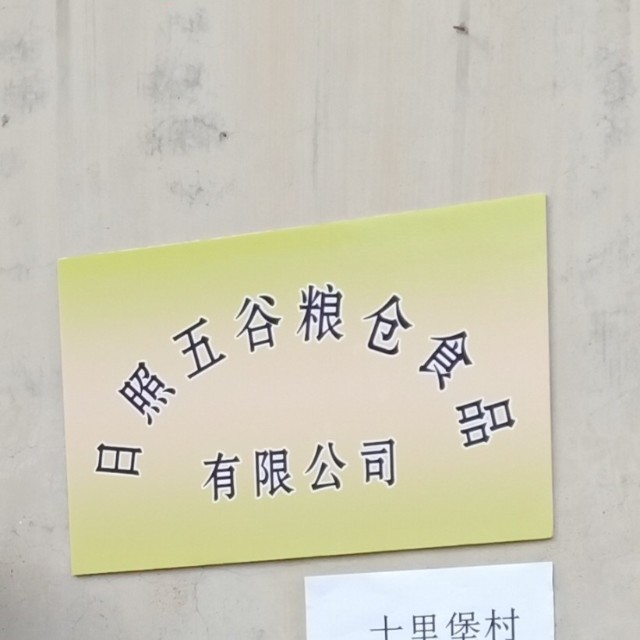 日照五谷粮仓食品
有限公司
十里堡村